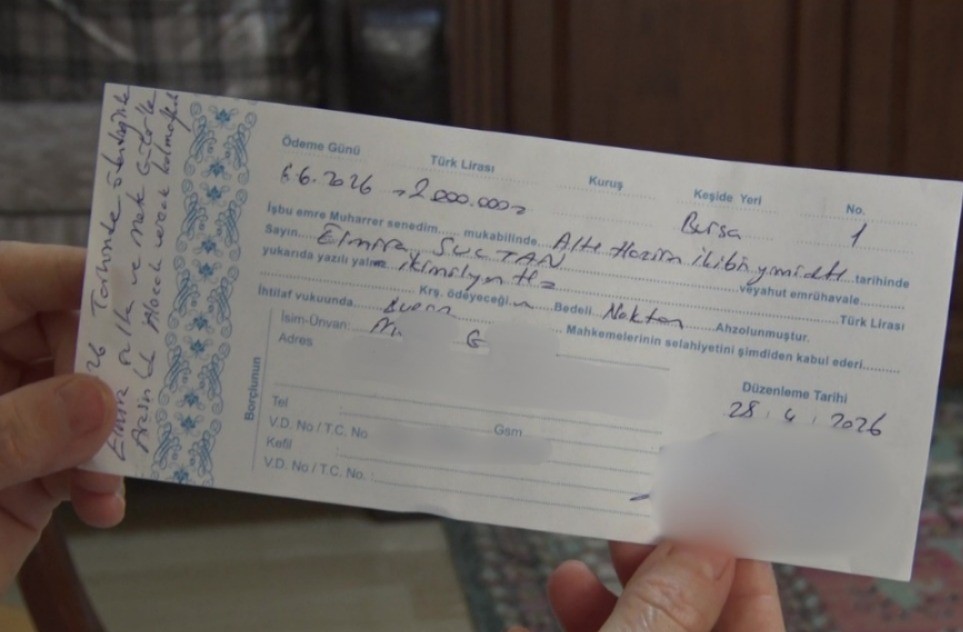 Ödeme Günü Türk Lirası Kuruş Keşide Yeri No.
6.6.2026 2.000.000 Bursa 1
İşbu emre Muharrer senedim..... mukabilinde Altı Haziran ikibin yirmialtı tarihinde
Sayın Elmira SULTAN veyahut emrühavale
yukarıda yazılı yalnız ikimilyon Türk Lirası
Krş. ödeyeceğim Bedeli Nakten Ahzolunmuştur.
İhtilaf vukuunda Bursa Mahkemelerinin selahiyetini şimdiden kabul ederi
Borçlunun
İsim-Ünvan: G
Adres
Tel : Gsm
V.D. No / T.C. No
Kefil :
V.D. No / T.C. No. :
Düzenleme Tarihi
28.4.2026
26 Tarihinde ödendiğinde
Elmira ve
Arasında Alacak verecek kalmayacak